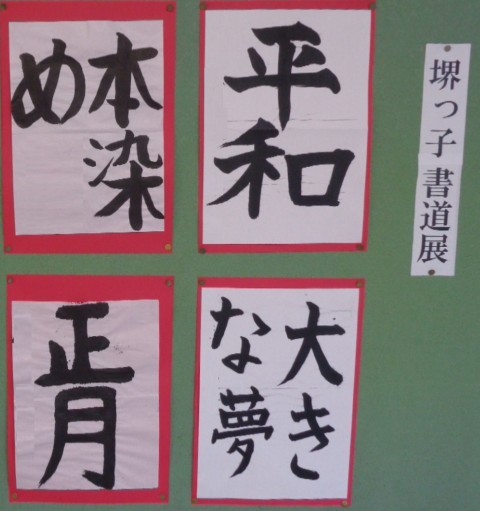 堺っ子書道展
平和
本染
め
大き
な夢
正月